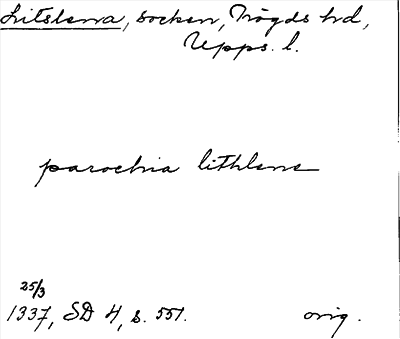 Litslena, socken, Trögds hd,
Upps. l.
parochia lithlene
25/3
1337, SD 4, s. 551. orig.